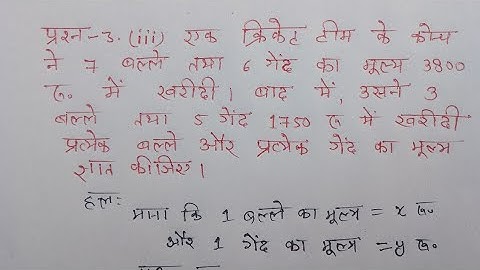 प्रश्न-3. (iii) एक क्रिकेट टीम के कोच
ने 7 बल्ले तथा 6 गेंद का मूल्य 3800
रु० में खरीदी। बाद में, उसने 3
बल्ले तथा 5 गेंद 1750 रु में खरीदी
प्रत्येक बल्ले और प्रत्येक गेंद का मूल्य
ज्ञात कीजिए।
हल: माना कि 1 बल्ले का मूल्य = x रु०
और 1 गेंद का मूल्य = y रु०